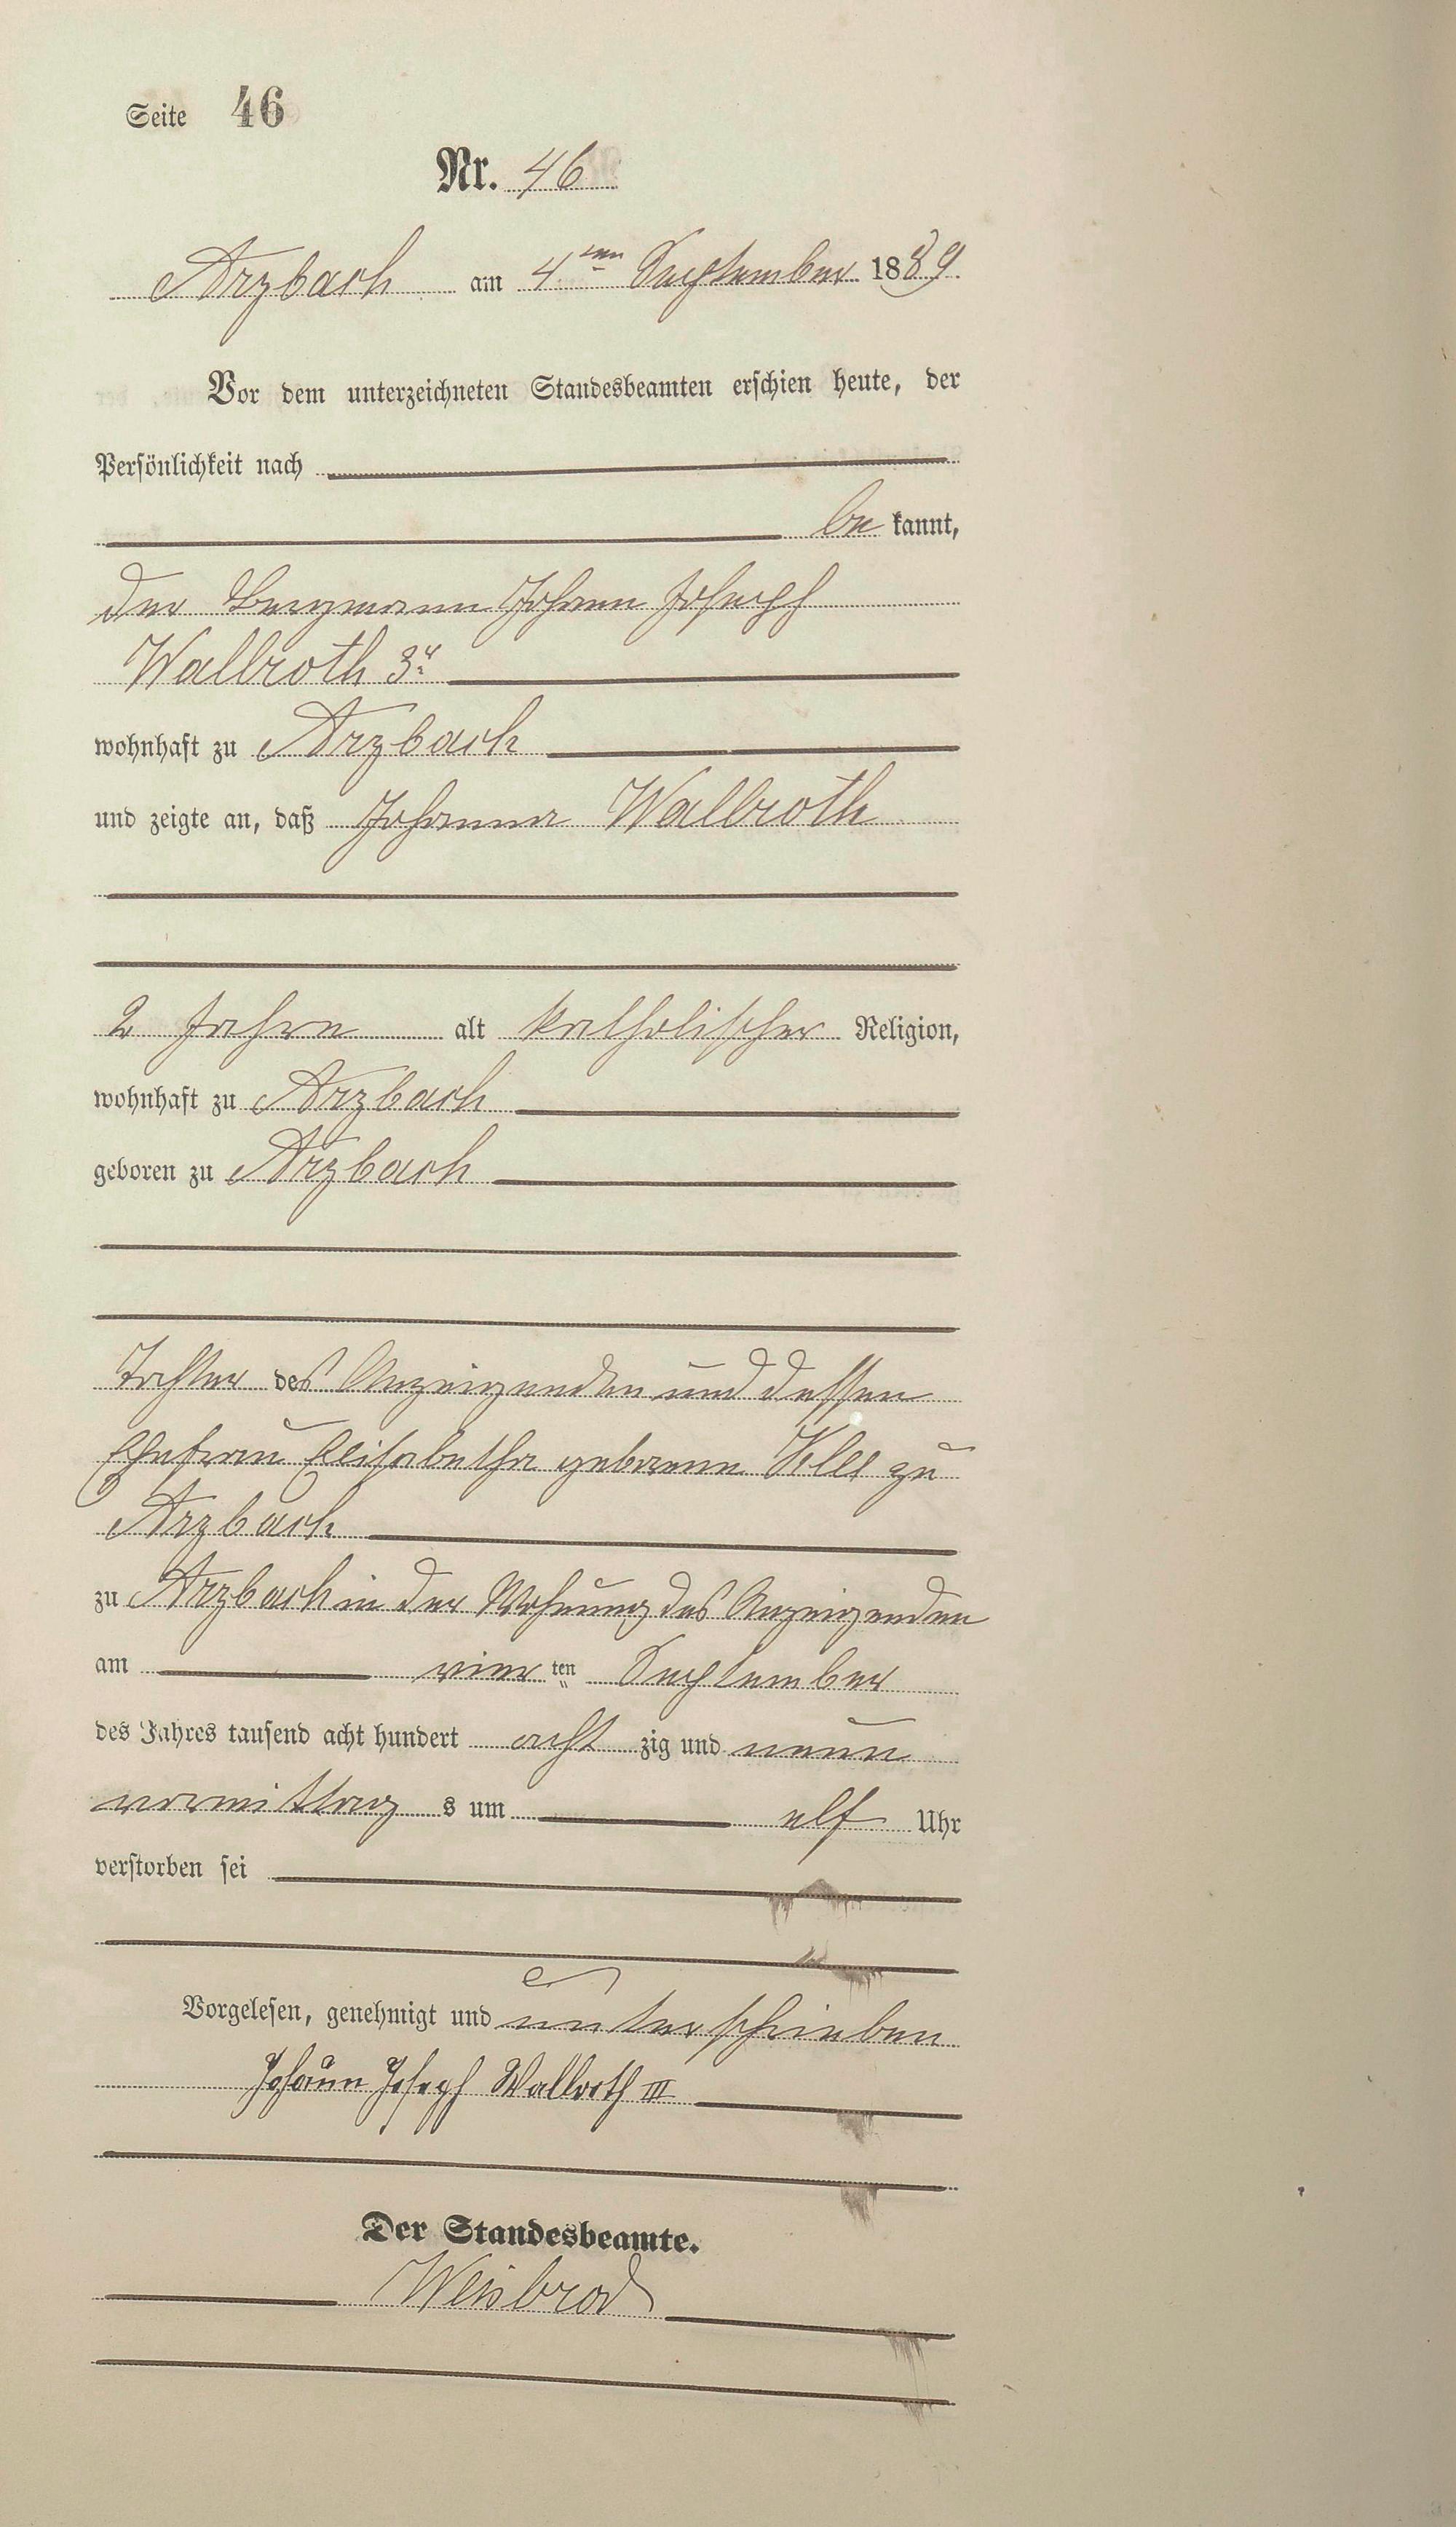 Seite 46
Nr. 46
Arzbach am 4ten September 1889.
Vor dem unterzeichneten Standesbeamten erschien heute, der
Persönlichkeit nach
be kannt,
der Bergmann Johann Joseph
Wallroth 3r
wohnhaft zu Arzbach
und zeigte an, daß Johanna Wallroth
2 Jahre alt katholischer Religion,
wohnhaft zu Arzbach
geboren zu Arzbach
Tochter des Anzeigenden und dessen
Ehefrau Elisabetha geborene zu
Arzbach
zu Arzbach in der Wohnung des Anzeigenden
am vier ten September
des Jahres tausend acht hundert acht zig und neun
vormittag s um elf Uhr
verstorben sei
Vorgelesen, genehmigt und unterschrieben
Johann Joseph Wallroth III
Der Standesbeamte.
Weisbrod